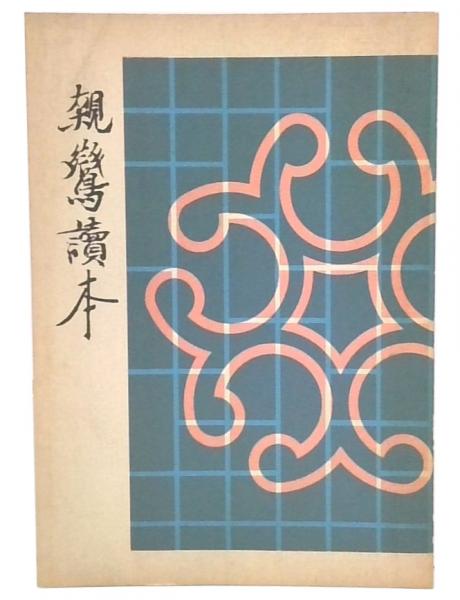 親鸞讀本